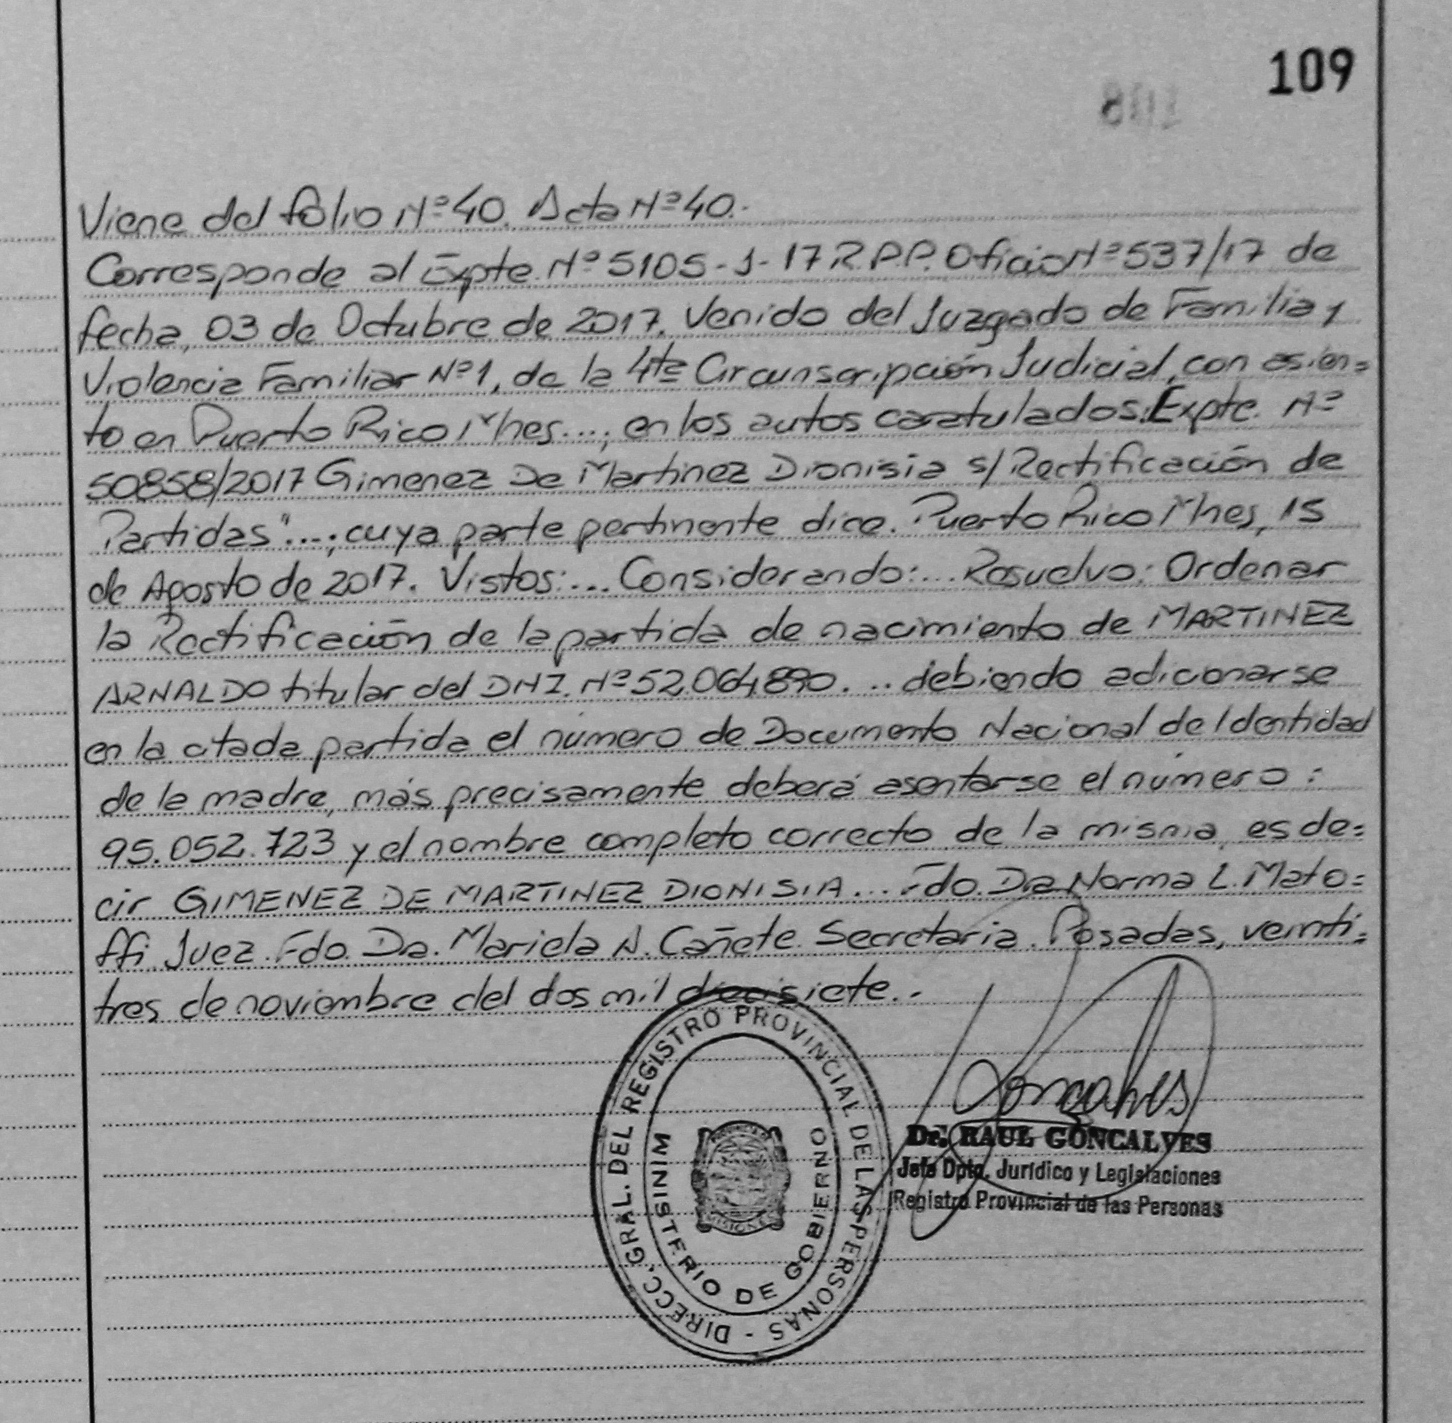 109
108
Viene del folio Nº 40. Acta Nº 40.-
Corresponde al Expte. Nº 5105-J-17 R.P.P. Oficio Nº 537/17 de
fecha, 03 de Octubre de 2017. Venido del Juzgado de Familia y
Violencia Familiar Nº 1, de la 4ta Circunscripción Judicial, con asien=
to en Puerto Rico Mnes...; en los autos caratulados: Expte. Nº
50858/2017 Gimenez De Martinez Dionisia s/Rectificación de
Partidas"...; cuya parte pertinente dice. Puerto Rico Mnes, 15
de Agosto de 2017. Vistos:... Considerando:... Resuelvo: Ordenar
la Rectificación de la partida de nacimiento de MARTINEZ
ARNALDO titular del DNI. Nº 52.064.890. .. debiendo adicionarse
en la citada partida el número de Documento Nacional de Identidad
de la madre, más precisamente deberá asentarse el número:
95.052.723 y el nombre completo correcto de la misma, es de=
cir GIMENEZ DE MARTINEZ DIONISIA... Fdo. Dra Norma L. Mato=
ffi Juez. Fdo. Dra. Mariela A. Cañete. Secretaria. Posadas, veinti=
tres de noviembre del dos mil diecisiete.-
DIRECC. GRAL. DEL REGISTRO PROVINCIAL DE LAS PERSONAS -
MINISTERIO DE GOBIERNO
MISIONES
Goncalves
Dr. RAUL GONCALVES
Jefe Dpto. Jurídico y Legislaciones
Registro Provincial de las Personas